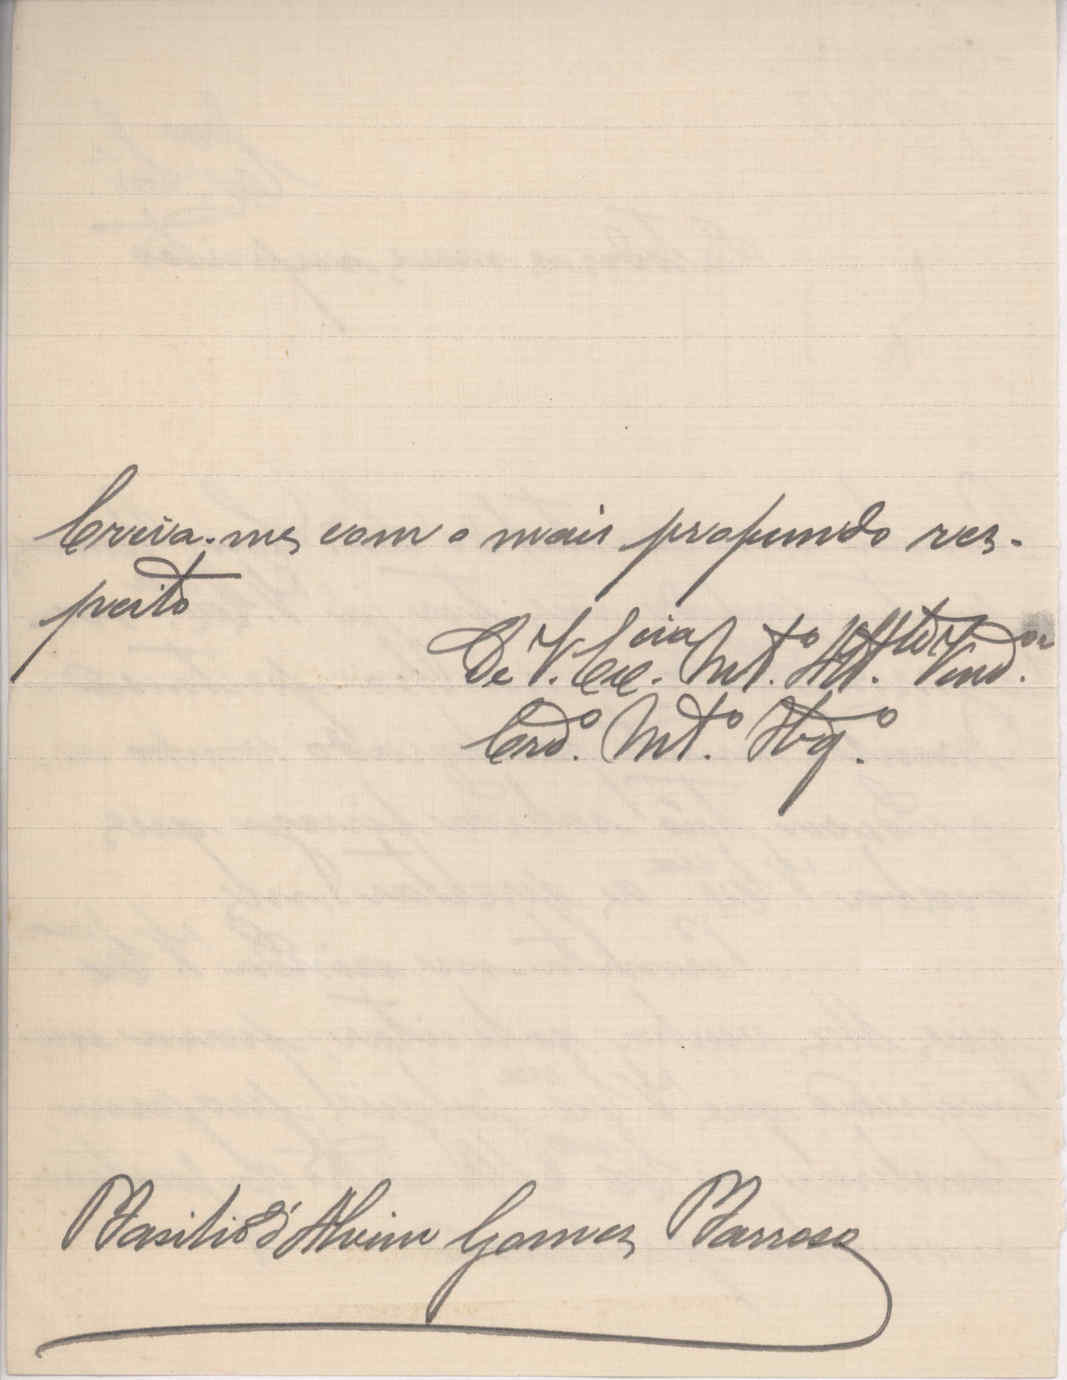 Creia-me, com o mais profundo res-
peito
De V. Excia Mt.o Att. Vend.or
Crdo. Mt.o Obg.o
Basilio d'Alvim Gomes Barroso